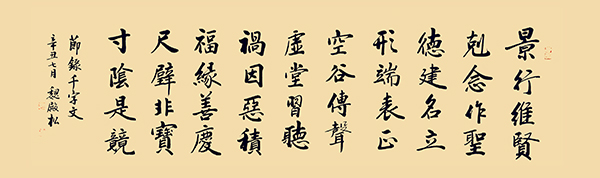 景行維賢
剋念作聖
德建名立
形端表正
空谷傳聲
虛堂習聽
禍因惡積
福緣善慶
尺璧非寶
寸陰是競
節錄千字文
辛丑七月